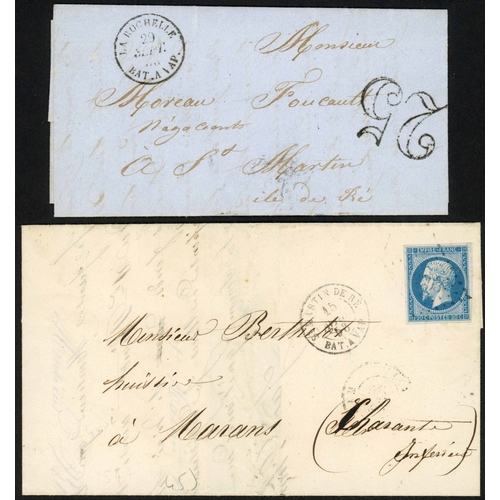 LA ROCHELLE
29
SEPT.
BAT. A VAP.
Monsieur
Moreau Foucault
Négociant
à St Martin
ile de Ré
25
EMPIRE FRANC
20 C POSTES 20 C
MARTIN DE RÉ
15
BAT. A VAP.
Monsieur Berthet
huissier
à Marans
(Charante
Inférieure